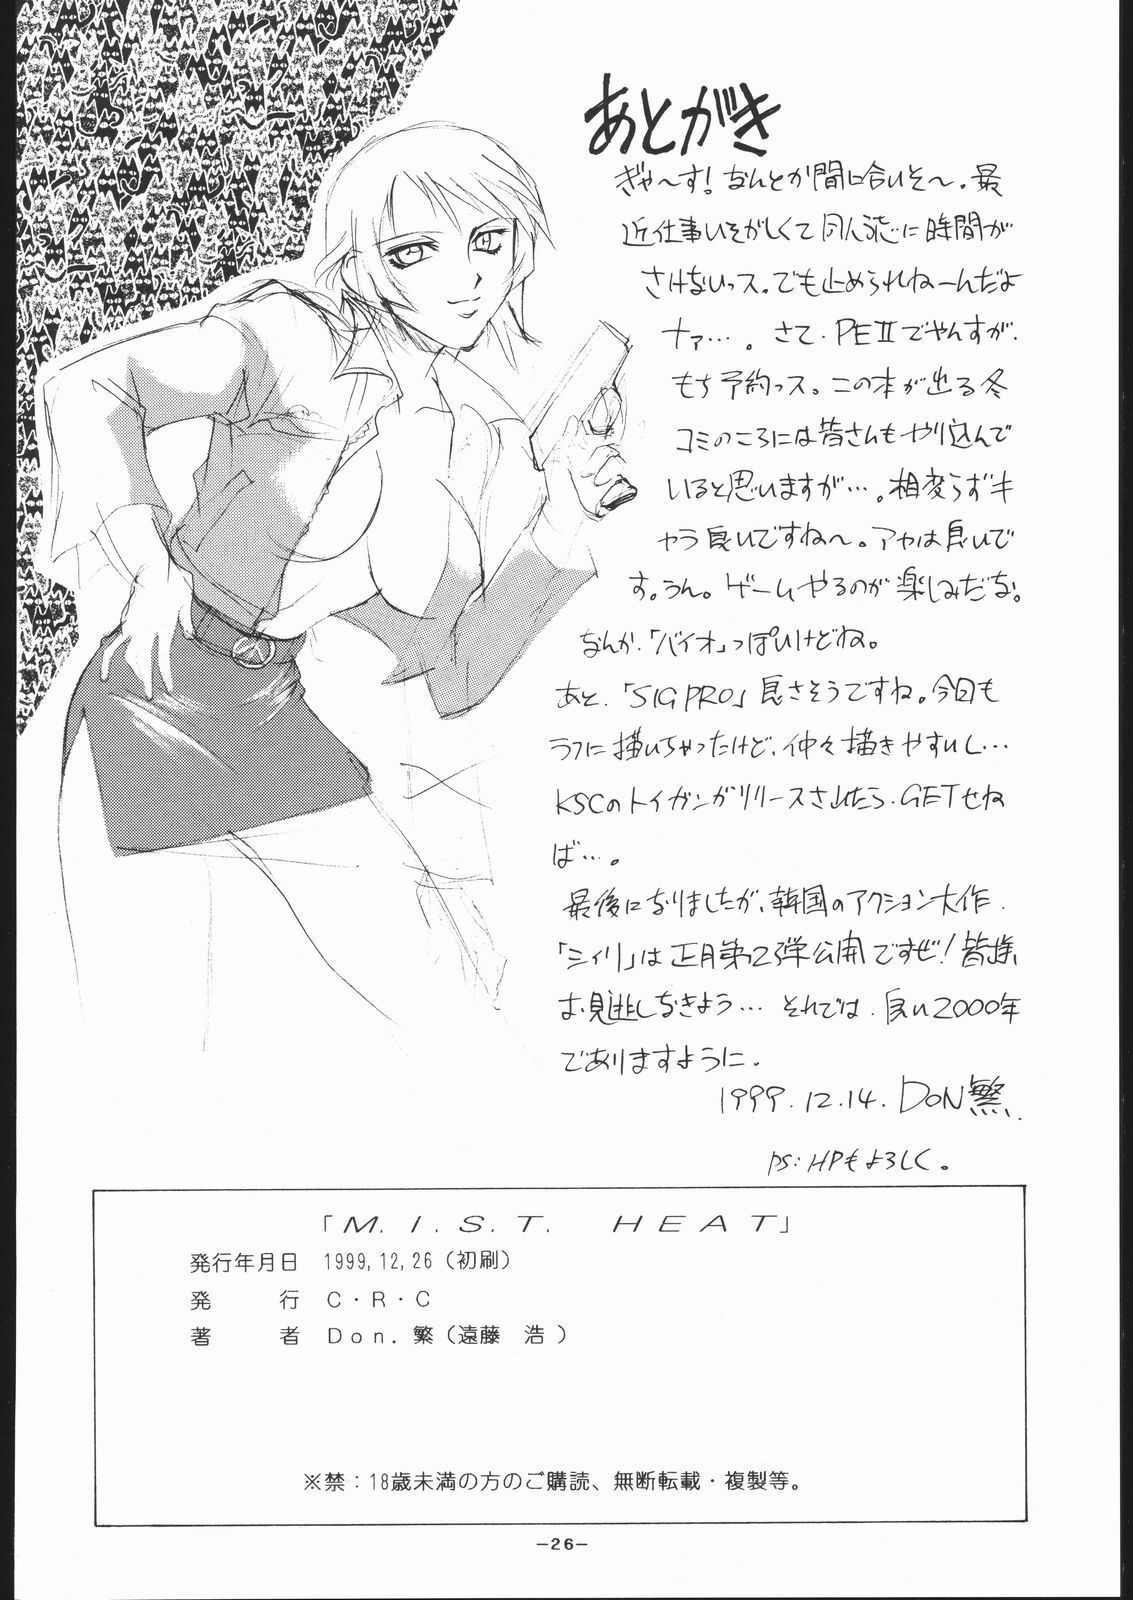 あとがき
ぎゃ〜す!なんとか間に合いそ〜。最
近仕事いそがしくて同人誌に時間が
さけないっス。でも止められねーんだよ
ナァ…。さて、PEⅡでやんすが、
もち予約っス。この本が出る冬
コミのころには皆さんもやり込んで
いると思いますが…。相変らずキ
ャラ良いですね〜。アヤは良いで
す。うん。ゲームやるのが楽しみだな。
なんか、「バイオ」っぽいけどね。
あと、「SIG PRO」良さそうですね。今回も
ラフに描いちゃったけど、仲々描きやすいし…
KSCのトイガンがリリースされたら、GETせね
ば…。
最後になりましたが、韓国のアクション大作、
「シュリ」は正月第2弾公開ですぜ!皆様、
お見逃しなきよう…それでは、良い2000年
でありますように.
1999.12.14.DoN繁.
PS:HPもよろしく。
「M.I.S.T. HEAT」
発行年月日 1999,12,26(初刷)
発 行 C・R・C
著 者 Don.繁(遠藤 浩)
※禁:18歳未満の方のご購読、無断転載・複製等。
-26-